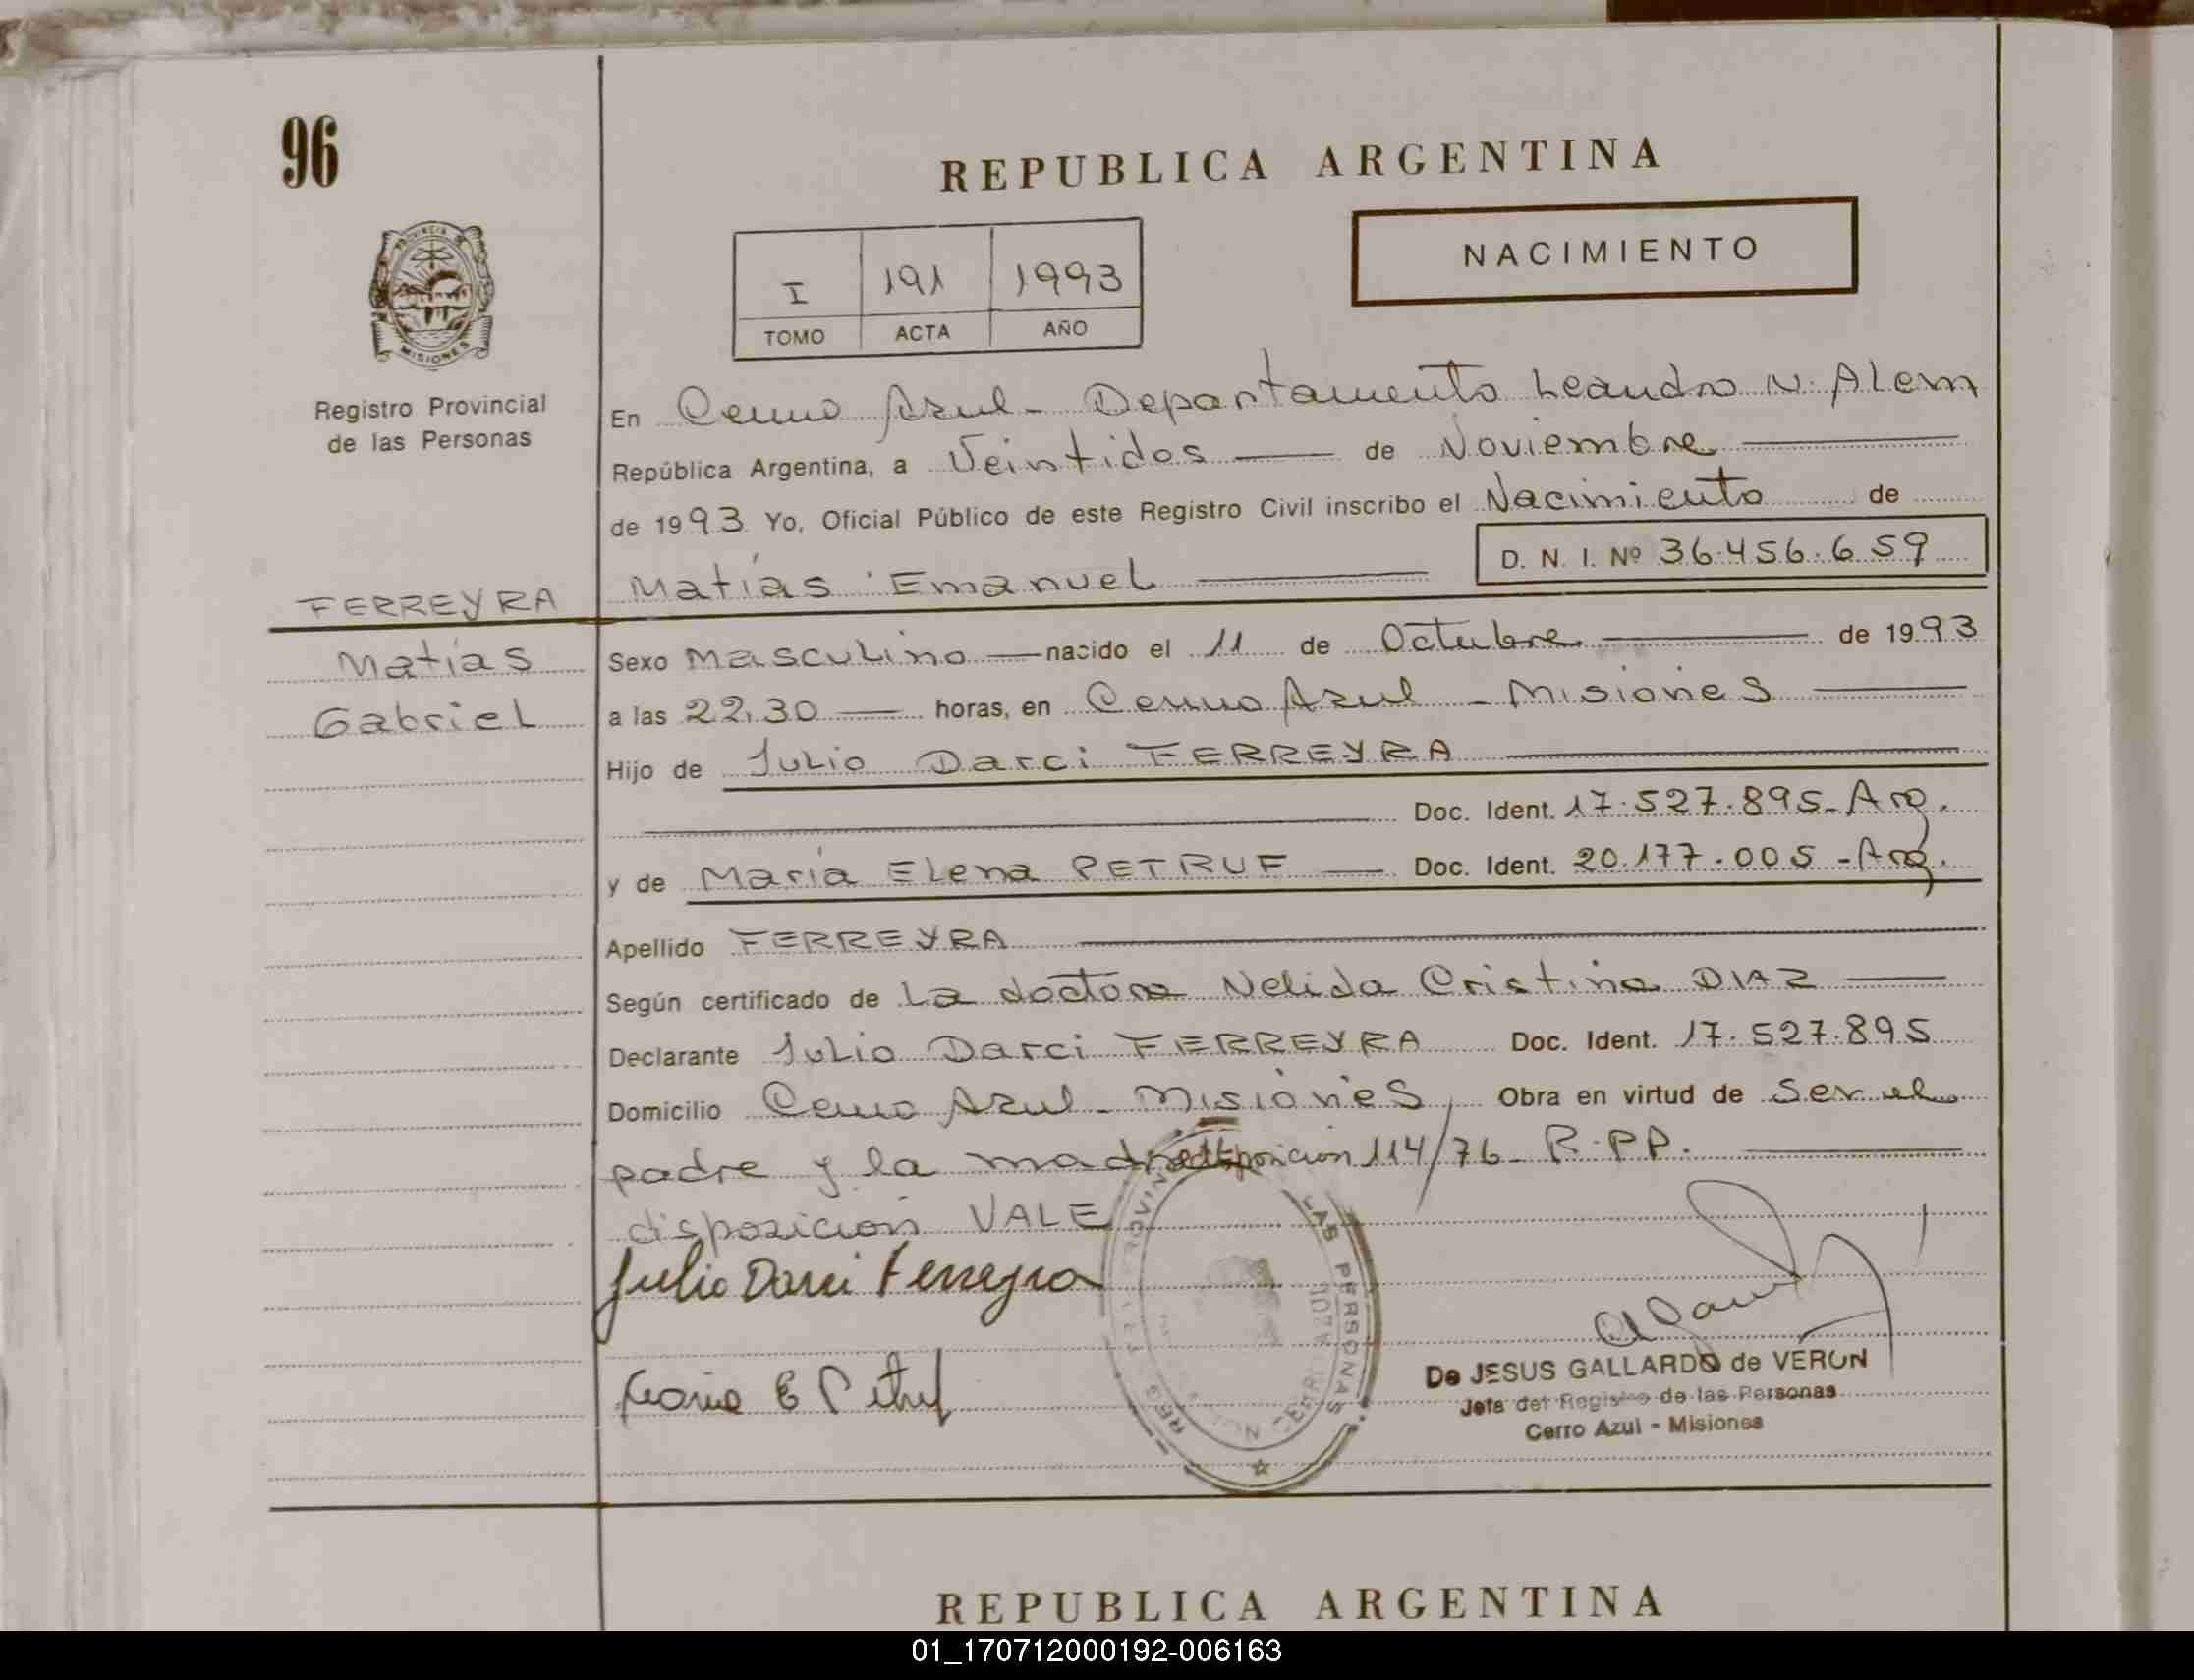 96
REPUBLICA ARGENTINA
I 191 1993
TOMO ACTA AÑO
NACIMIENTO
PROVINCIA DE
MISIONES
Registro Provincial
de las Personas
En Cerro Azul - Departamento Leandro N. Alem
República Argentina, a Veintidos de Noviembre
de 1993 Yo, Oficial Público de este Registro Civil inscribo el Nacimiento de
Matías Emanuel D. N. I. Nº 36.456.659
FERREYRA
Matías
Gabriel
Sexo Masculino nacido el 11 de Octubre de 1993
a las 22,30 horas, en Cerro Azul - Misiones
Hijo de Julio Darci FERREYRA
Doc. Ident. 17.527.895 - Arg.
y de María Elena PETRUF Doc. Ident. 20.177.005 - Arg.
Apellido FERREYRA
Según certificado de La doctora Nelida Cristina DIAZ
Declarante Julio Darci FERREYRA Doc. Ident. 17.527.895
Domicilio Cerro Azul - Misiones, Obra en virtud de Ser el
padre y la madre disposición 114/76 - R.P.P.
disposición VALE
Julio Darci Ferreyra
Maria E Petruf
LAS PERSONAS
CERRO AZUL
De JESUS GALLARDO de VERON
Jefa del Registro de las Personas
Cerro Azul - Misiones
REPUBLICA ARGENTINA
01_170712000192-006163